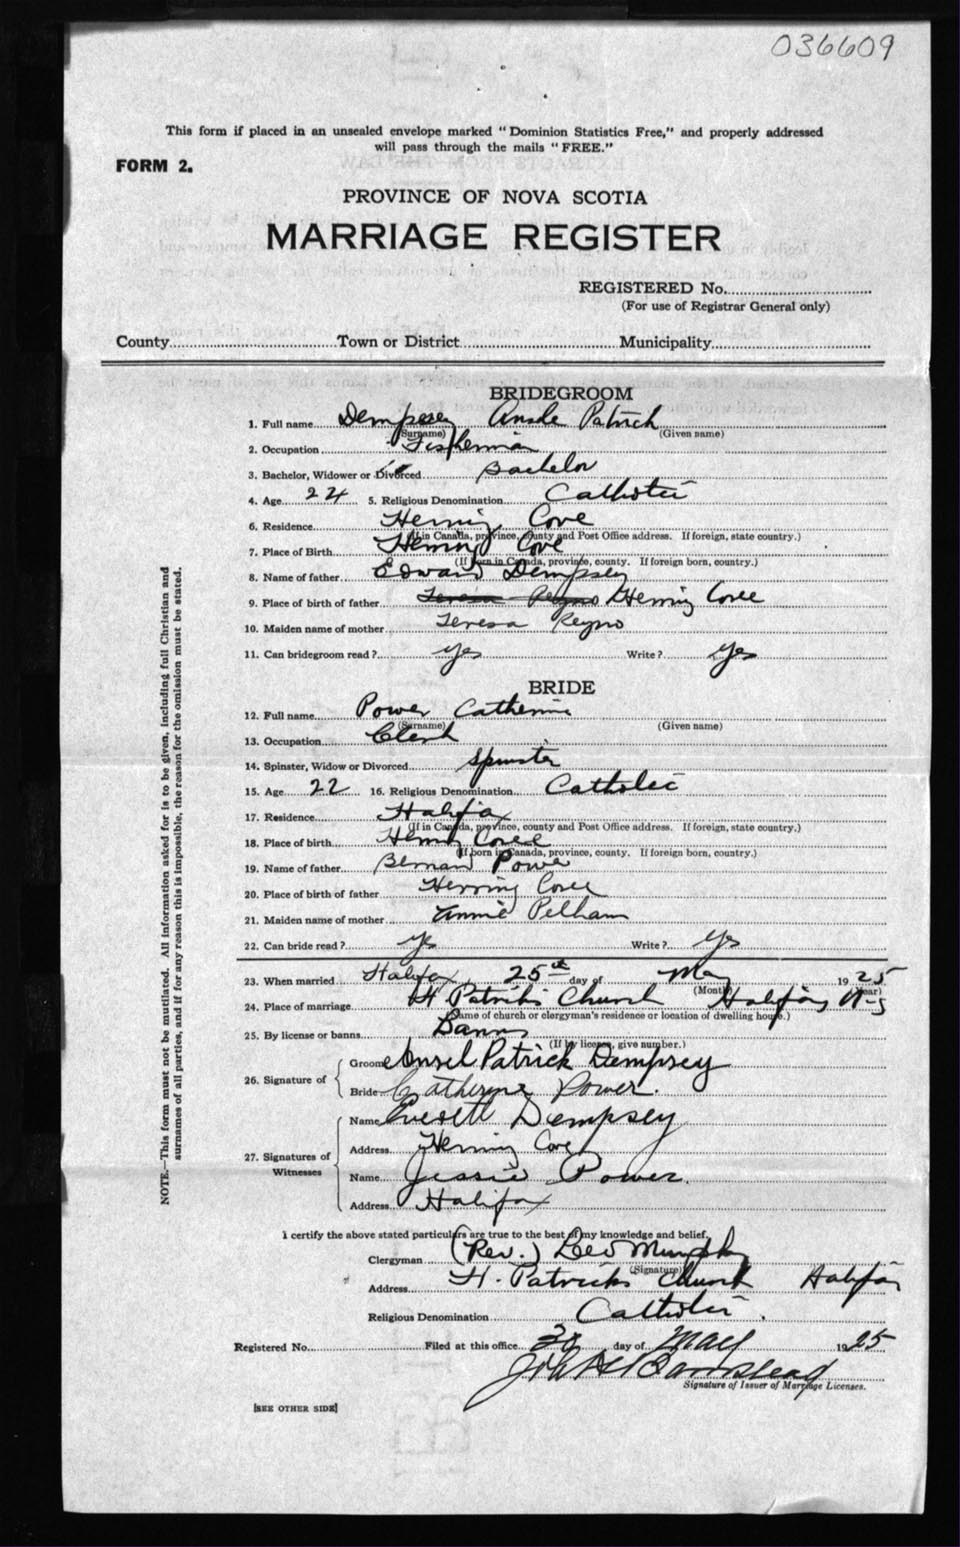 036609
This form if placed in an unsealed envelope marked "Dominion Statistics Free," and properly addressed
will pass through the mails "FREE."
FORM 2.
PROVINCE OF NOVA SCOTIA
MARRIAGE REGISTER
REGISTERED No.
(For use of Registrar General only)
County Town or District Municipality
BRIDEGROOM
1. Full name Dempsey Ansle Patrick
(Surname) (Given name)
2. Occupation Fisherman
3. Bachelor, Widower or Divorced Bachelor
4. Age 24 5. Religious Denomination Catholic
6. Residence Herring Cove
(If in Canada, province, county and Post Office address. If foreign, state country.)
7. Place of Birth Herring Cove
(If born in Canada, province, county. If foreign born, country.)
8. Name of father Edward Dempsey
9. Place of birth of father Teresa Reyno Herring Cove
10. Maiden name of mother Teresa Reyno
11. Can bridegroom read? yes Write? yes
BRIDE
12. Full name Power Catherine
(Surname) (Given name)
13. Occupation Clerk
14. Spinster, Widow or Divorced Spinster
15. Age 22 16. Religious Denomination Catholic
17. Residence Halifax
(If in Canada, province, county and Post Office address. If foreign, state country.)
18. Place of birth Herring Cove
(If born in Canada, province, county. If foreign born, country.)
19. Name of father Bernard Power
20. Place of birth of father Herring Cove
21. Maiden name of mother Annie Pelham
22. Can bride read? yes Write? yes
23. When married Halifax 25th day of May 1925
(Month) (Year)
24. Place of marriage St Patricks Church Halifax N-S
(Name of church or clergyman's residence or location of dwelling house.)
25. By license or banns Banns
(If by license, give number.)
26. Signature of Groom Ansel Patrick Dempsey
Bride Catherine Power.
27. Signatures of Witnesses Name Everett Dempsey
Address Herring Cove
Name Jessie Power.
Address Halifax
I certify the above stated particulars are true to the best of my knowledge and belief.
Clergyman (Rev.) Leo Murphy
(Signature)
Address St. Patricks Church Halifax
Religious Denomination Catholic.
Registered No. Filed at this office 30 day of May 1925
John H Barnstead
Signature of Issuer of Marriage Licenses.
[SEE OTHER SIDE]
NOTE.—This form must not be mutilated. All information asked for is to be given, including full Christian and
surnames of all parties, and if for any reason this is impossible, the reason for the omission must be stated.